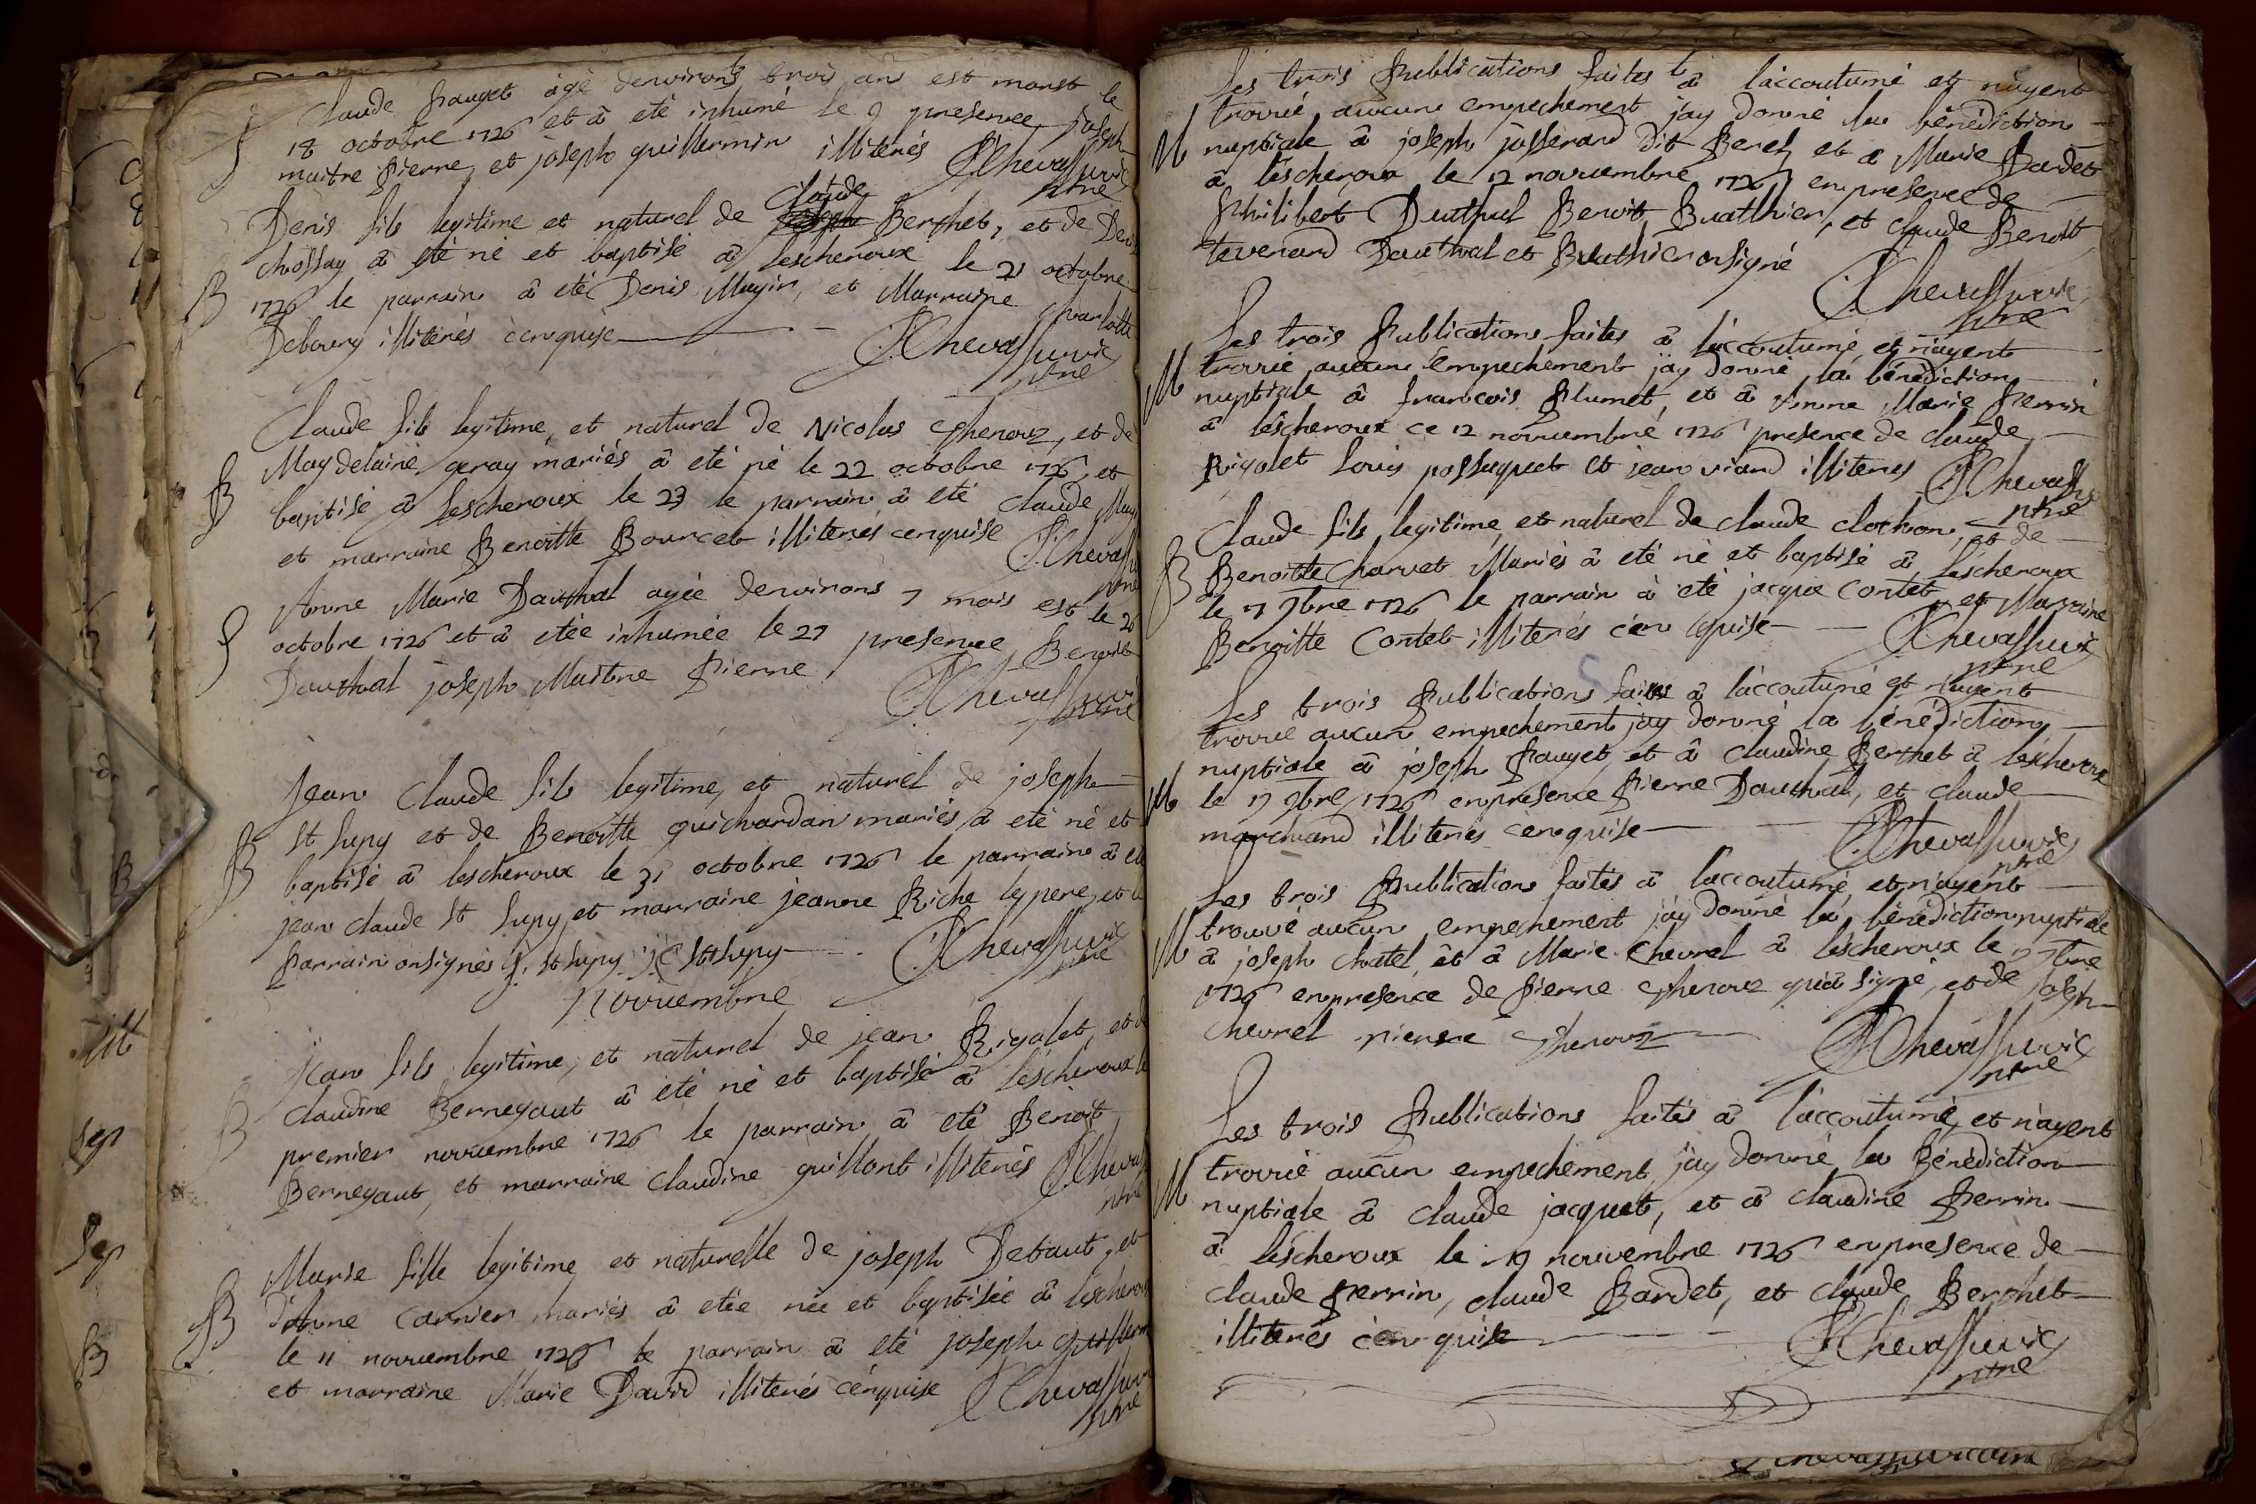 Claude pauget agé denvirons trois ans est mort le
18 octobre 1726 et â eté inhumé le 9 presence joseph
maitre pierre, et joseph guillermin illiterés JChevassuvic
ptre
Denis fils legitime et naturel de claude Berthet, et de Denise
chossay â eté né et baptisé â lescheroux le 21 octobre
B 1726 le parrain â eté Denis Mayin, et Marraine charlotte
Deboury illiterés cenquise JChevassuvic
ptre
Claude fils legitime, et naturel de Nicolas Thenoz, et de
Magdelaine geray mariés â eté né le 22 octobre 1726, et
B baptisé â lescheroux le 23 le parrain â eté claude May
et marraine Benoitte Bourcet illiterés cenquise JChevassu
ptre
Anne Marie Dauthal agée denvirons 7 mois est le 26
octobre 1726 et â etée inhumée le 27 presence Benoit
Dauthal joseph Maitre pierre JChevassuvic
ptre
Jean Claude fils legitime, et naturel de joseph
st lupy et de Benoitte guichardan mariés â eté né et
B baptisé â lescheroux le 31 octobre 1726 le parrain â eté
jean claude st lupy et marraine jeanne Riche le pere, et le
parrain onsignés J. st lupy JC st lupy JChevassuvic
ptre
Novvembre
Jean fils legitime, et naturel de jean Rigolet, et de
claudine Bernegaut â eté né et baptisé â lescheroux le
B premier novvembre 1726 le parrain â eté Benoit
Bernegaut, et marraine claudine guillont illiterés JChevas
ptre
Marie fille legitime et naturelle de joseph Debaut, et
B d'Anne carnier mariés â etée née et baptisée â lescheroux
le 11 novvembre 1726 le parrain â eté joseph guillerm
et marraine Marie David illiterés cenquise JChevassuvic
ptre
Les trois publications faites â l'accoutumé et n'ayent
M trouvé aucun empechement j'ay donné la bénédiction
nuptiale â joseph josserand dit Benet et â Marie Bardet
â lescheroux le 12 novvembre 1726 enpresence de
philibert Duthul Benoit Buathier, et claude Benoit
tevenard Dauthal et Buathier onsigné
JChevassuvic
ptre
Les trois publications faites â l'accoutumé, et n'ayent
M trouvé aucun empechement j'ay donné la bénédiction
nuptiale â françois plumet, et â Anne Marie perrin
â lescheroux ce 12 novvembre 1726 presence de claude
Rigolet louis passaquet et jean viand illiterés JChevass
ptre
Claude fils legitime, et naturel de claude clochon, et de
B Benoitte Charvet Mariés â eté né et baptisé â lescheroux
le 17 9bre 1726 le parrain â eté jacque Contet, et Marraine
Benoitte Contet illiterés cen quise JChevassuvic
ptre
Les trois publications faites â l'accoutumé et n'ayent
trouvé aucun empechement j'ay donné la bénédiction
nuptiale â joseph pauget, et â claudine Berthet â lescheroux
M le 17 9bre 1726 enpresence pierre Dauthal, et claude
marchand illiterés cenquise JChevassuvic
ptre
Les trois publications faites â l'accoutumé, et n'ayent
M trouvé aucun empechement j'ay donné la bénédiction nuptiale
â joseph chatel, et â Marie chevrel â lescheroux le 17 9bre
1726 enpresence de pierre Thenoz quiâ signé, et de joseph
chevrel pierre Thenoz JChevassuvic
ptre
Les trois publications faites â l'accoutumé, et n'ayent
M trouvé aucun empechement j'ay donné la Bénédiction
nuptiale â claude jacquet, et â claudine perrin
â lescheroux le 19 novvembre 1726 enpresence de
claude perrin, claude Bardet, et claude Berthet
illiterés cen quise JChevassuvic
ptre